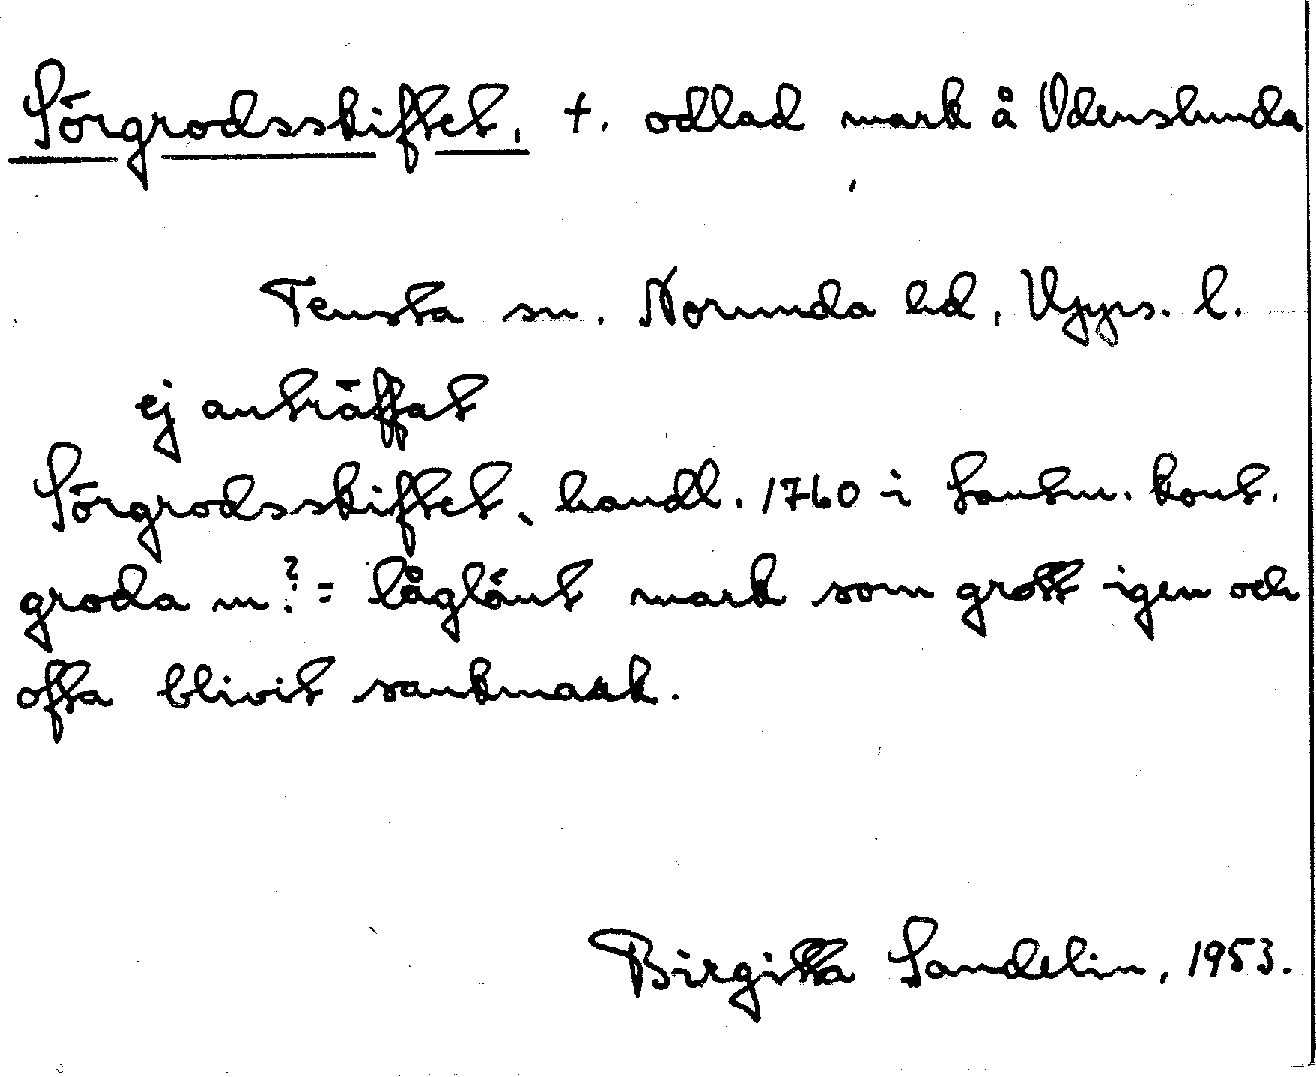 Sörgrodsskiftet, †. odlad mark å Odenslunda
Tensta sn. Norunda hd, Upps. l.
ej anträffat
Sörgrodsskiftet, handl. 1760 i Lantm. kont.
groda m? = låglänt mark som grott igen och
ofta blivit sankmark.
Birgitta Sandelin, 1953.